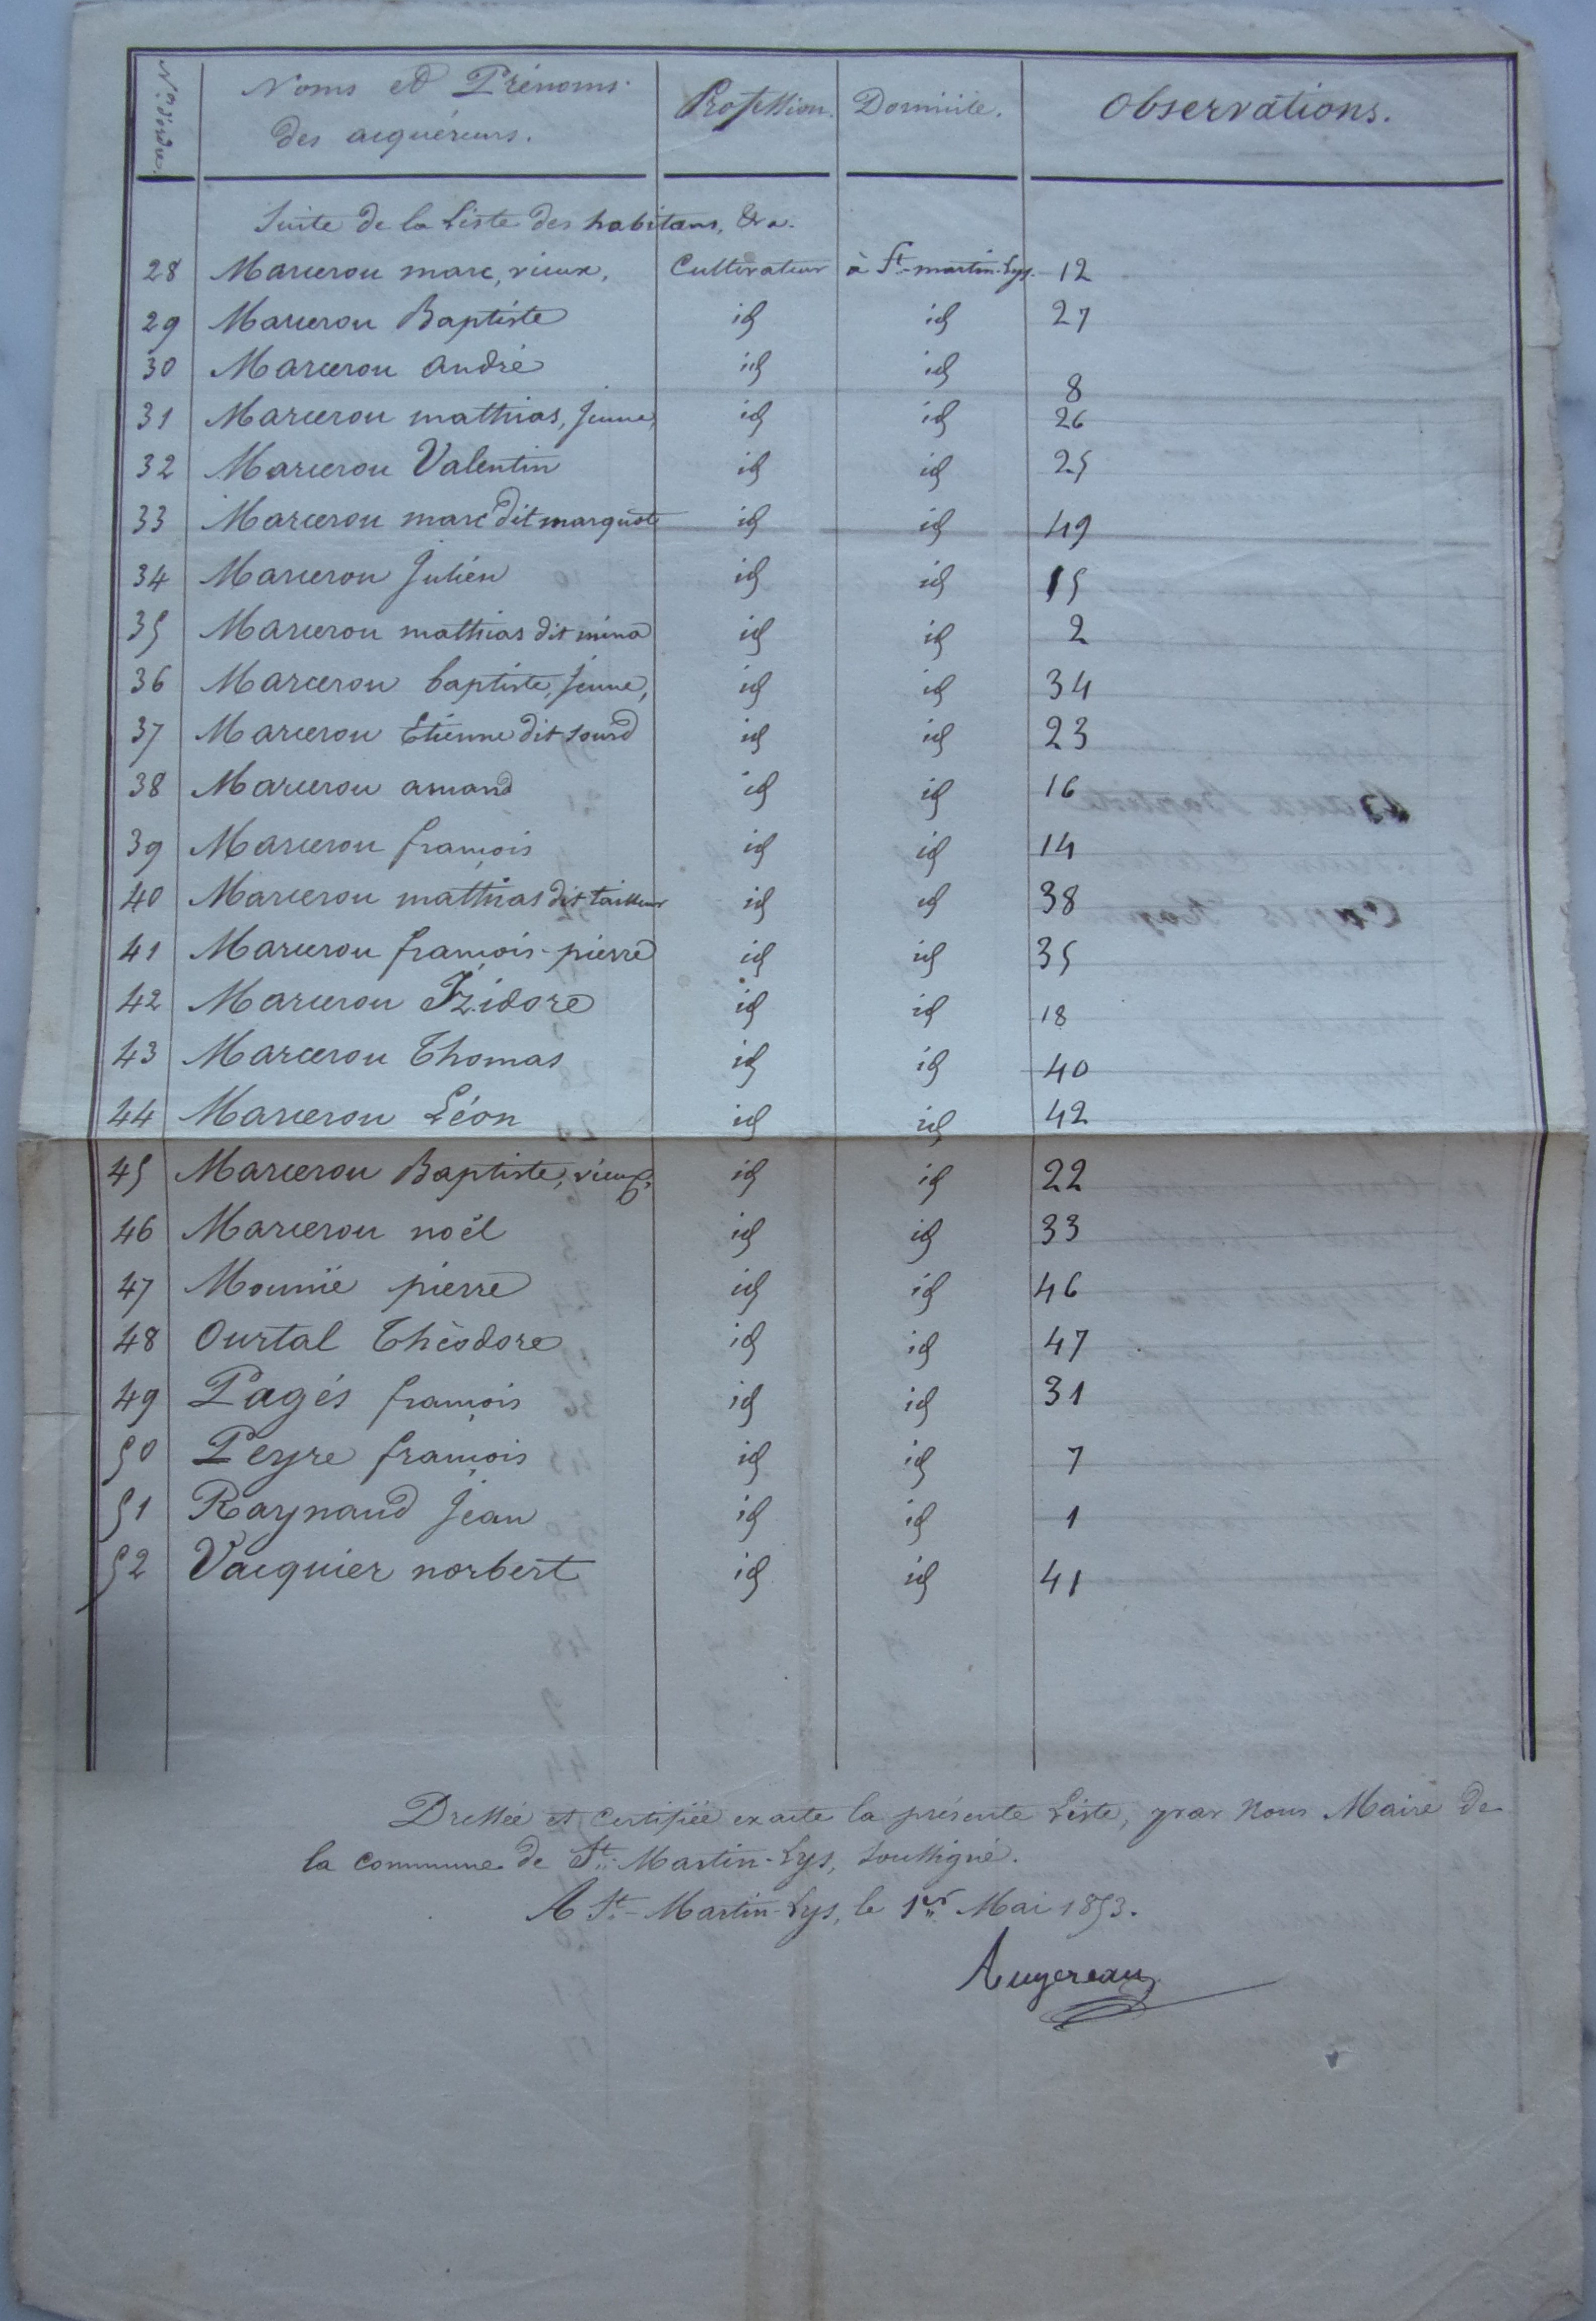 N.os d'ordre. Noms et Prénoms des acquéreurs. Profession. Domicile. Observations.
Suite de la Liste des habitans, &a.
28 Marcerou marc, vieux, Cultivateur à St-martin-Lys. 12
29 Marcerou Baptiste id id 27
30 Marcerou andré id id 8
31 Marcerou mathias, jeune, id id 26
32 Marcerou Valentin id id 25
33 Marcerou marc dit marquot id id 49
34 Marcerou Julien id id 15
35 Marcerou mathias dit mina id id 2
36 Marcerou baptiste, jeune, id id 34
37 Marcerou Etienne dit sourd id id 23
38 Marcerou amand id id 16
39 Marcerou françois id id 14
40 Marcerou mathias dit tailleur id id 38
41 Marcerou françois-pierre id id 35
42 Marcerou Izidore id id 18
43 Marcerou Thomas id id 40
44 Marcerou Léon id id 42
45 Marcerou Baptiste, vieux, id id 22
46 Marcerou noël id id 33
47 Mounié pierre id id 46
48 Ourtal Théodore id id 47
49 Pagés françois id id 31
50 Peyre françois id id 7
51 Raynaud Jean id id 1
52 Vacquier norbert id id 41
Dressée et certifiée exacte la présente Liste, par Nous Maire de
la commune de St. Martin-Lys, soussigné.
A St-Martin-Lys, le 1er Mai 1853.
Augereau